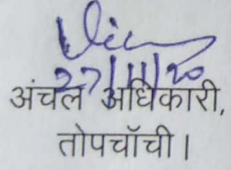 27/11/20
अंचल अधिकारी,
तोपचॉंची।